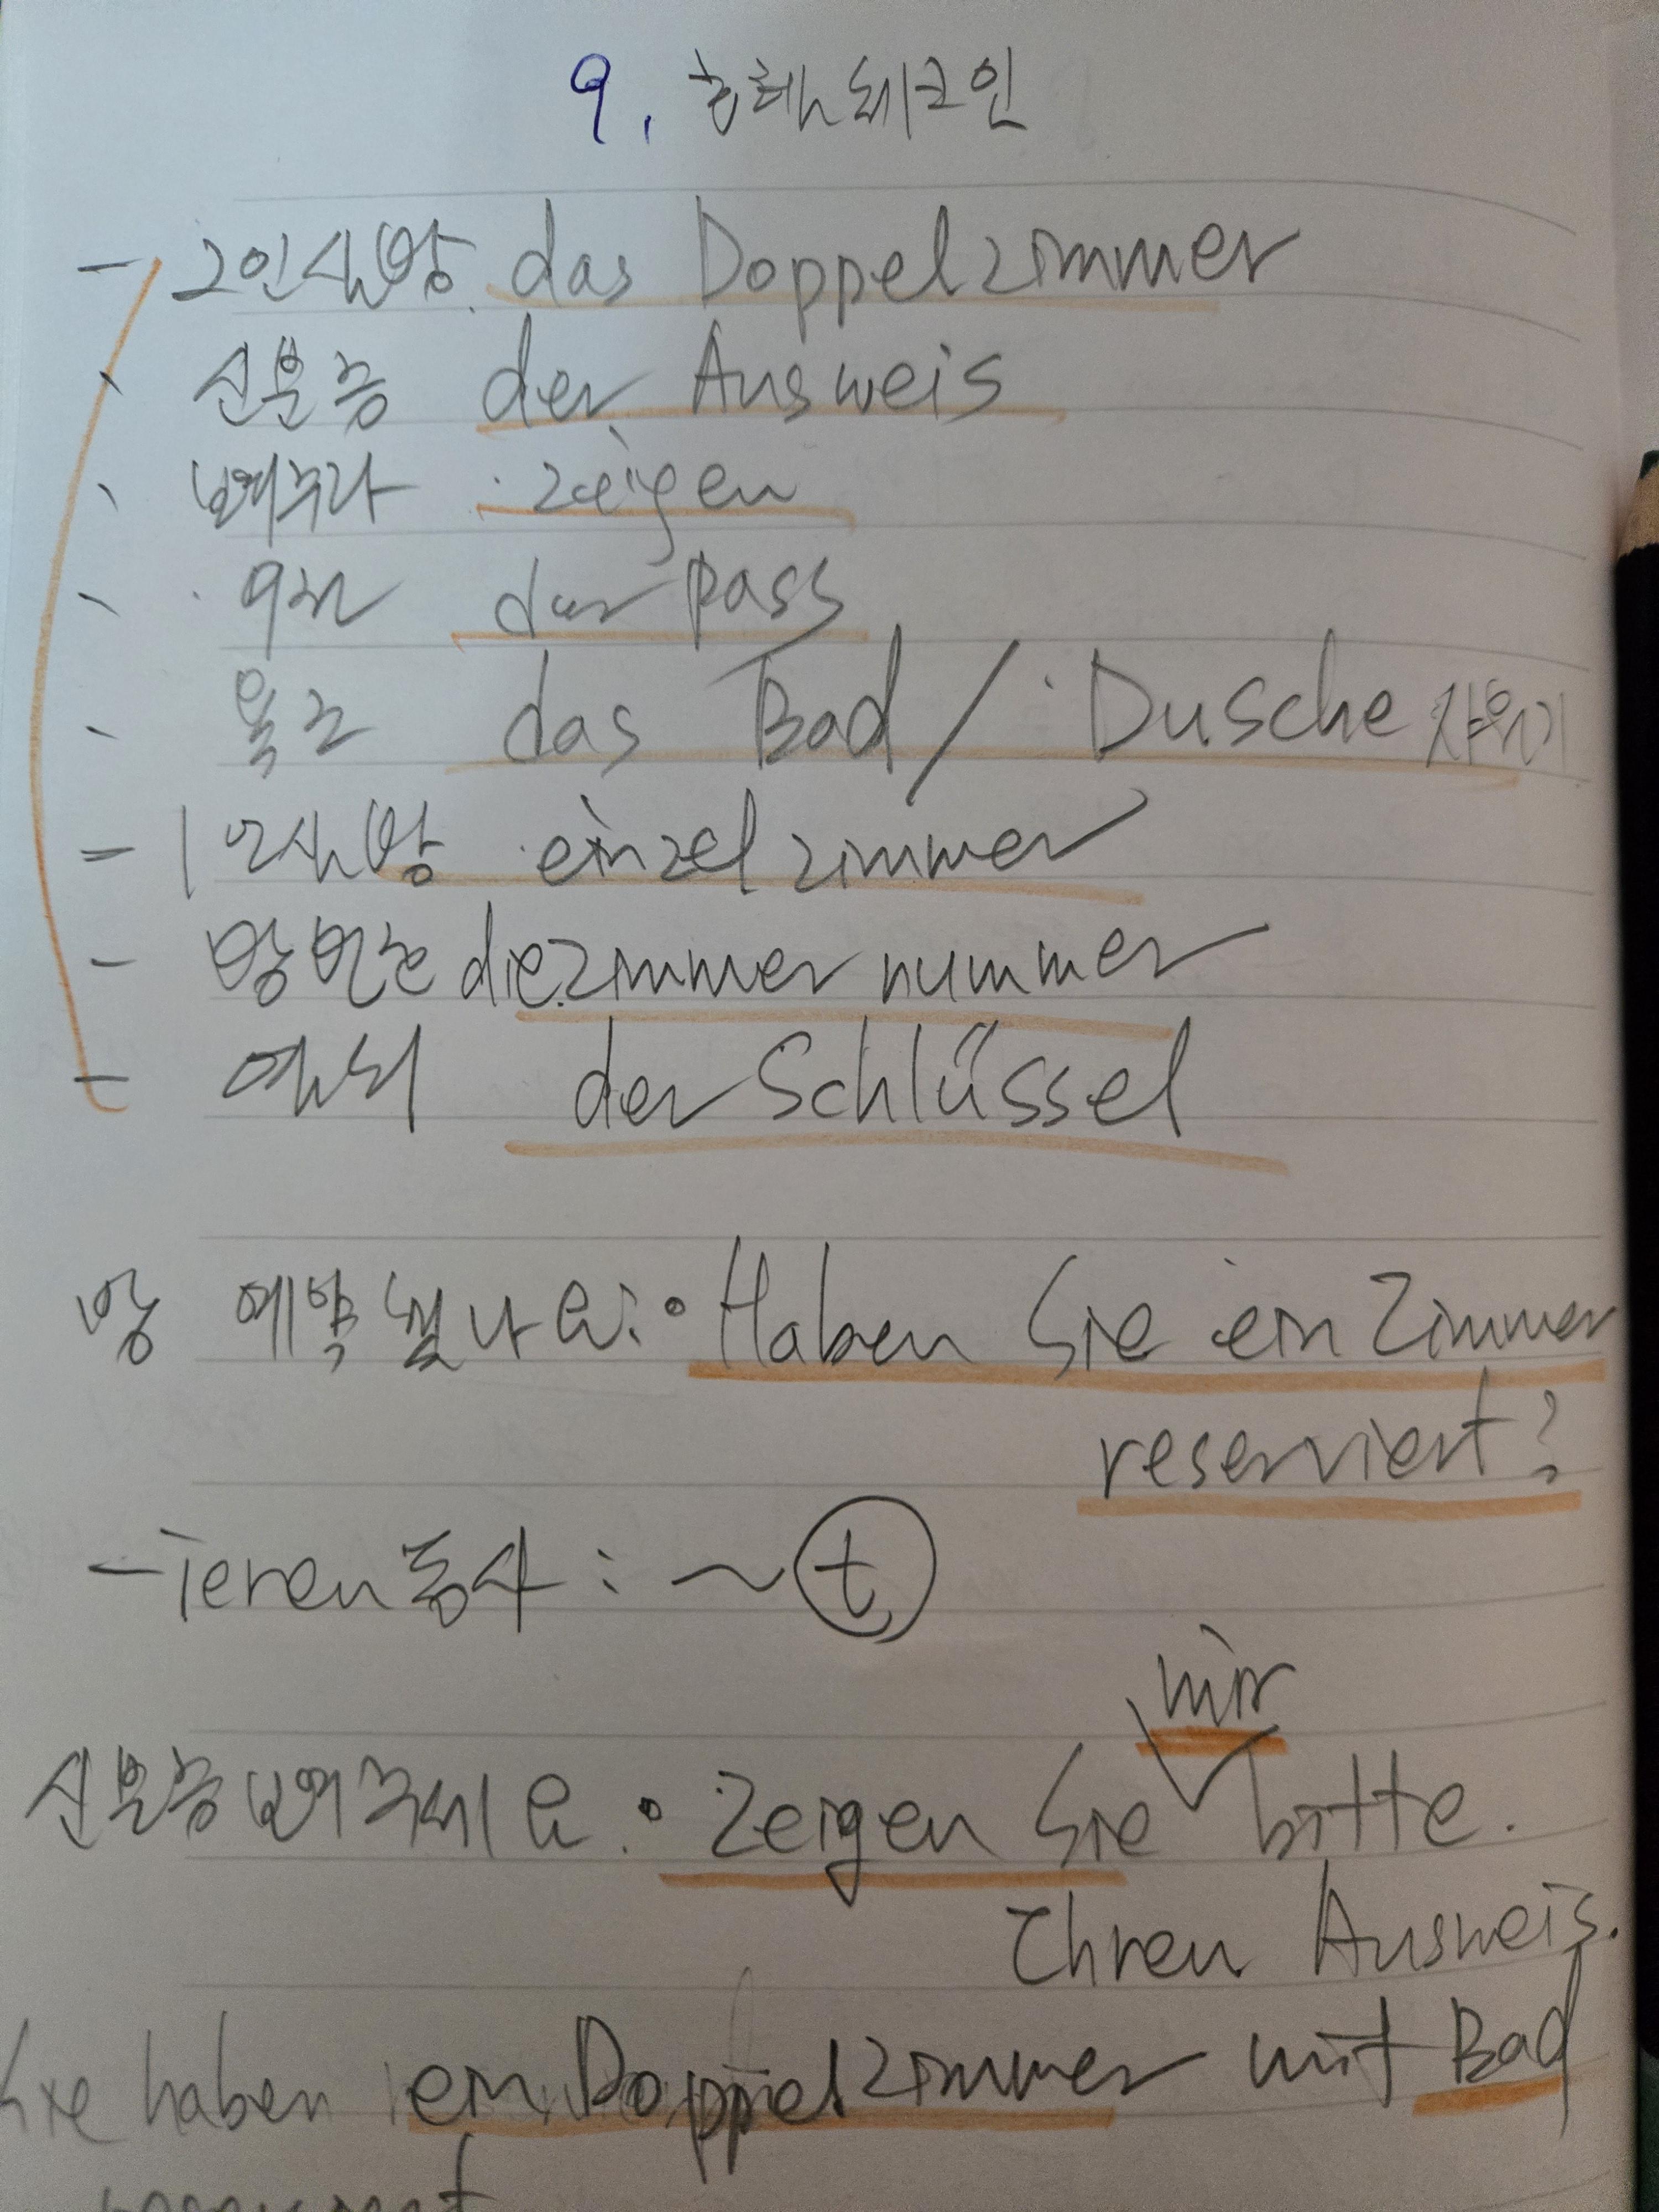 9. 호텔 체크인
- 2인실방 das Doppelzimmer
신분증 der Ausweis
보여주다 zeigen
여권 der pass
욕조 das Bad / Dusche 샤워기
- 1인실방 einzelzimmer
- 방번호 die zimmer nummer
- 열쇠 der Schlüssel
방 예약 했나요: Haben Sie ein Zimmer
reserviert?
-ieren 동사 : ~ t
mir
신분증 보여주세요. Zeigen Sie bitte.
Ihren Ausweis.
Sie haben ein Doppelzimmer mit Bad